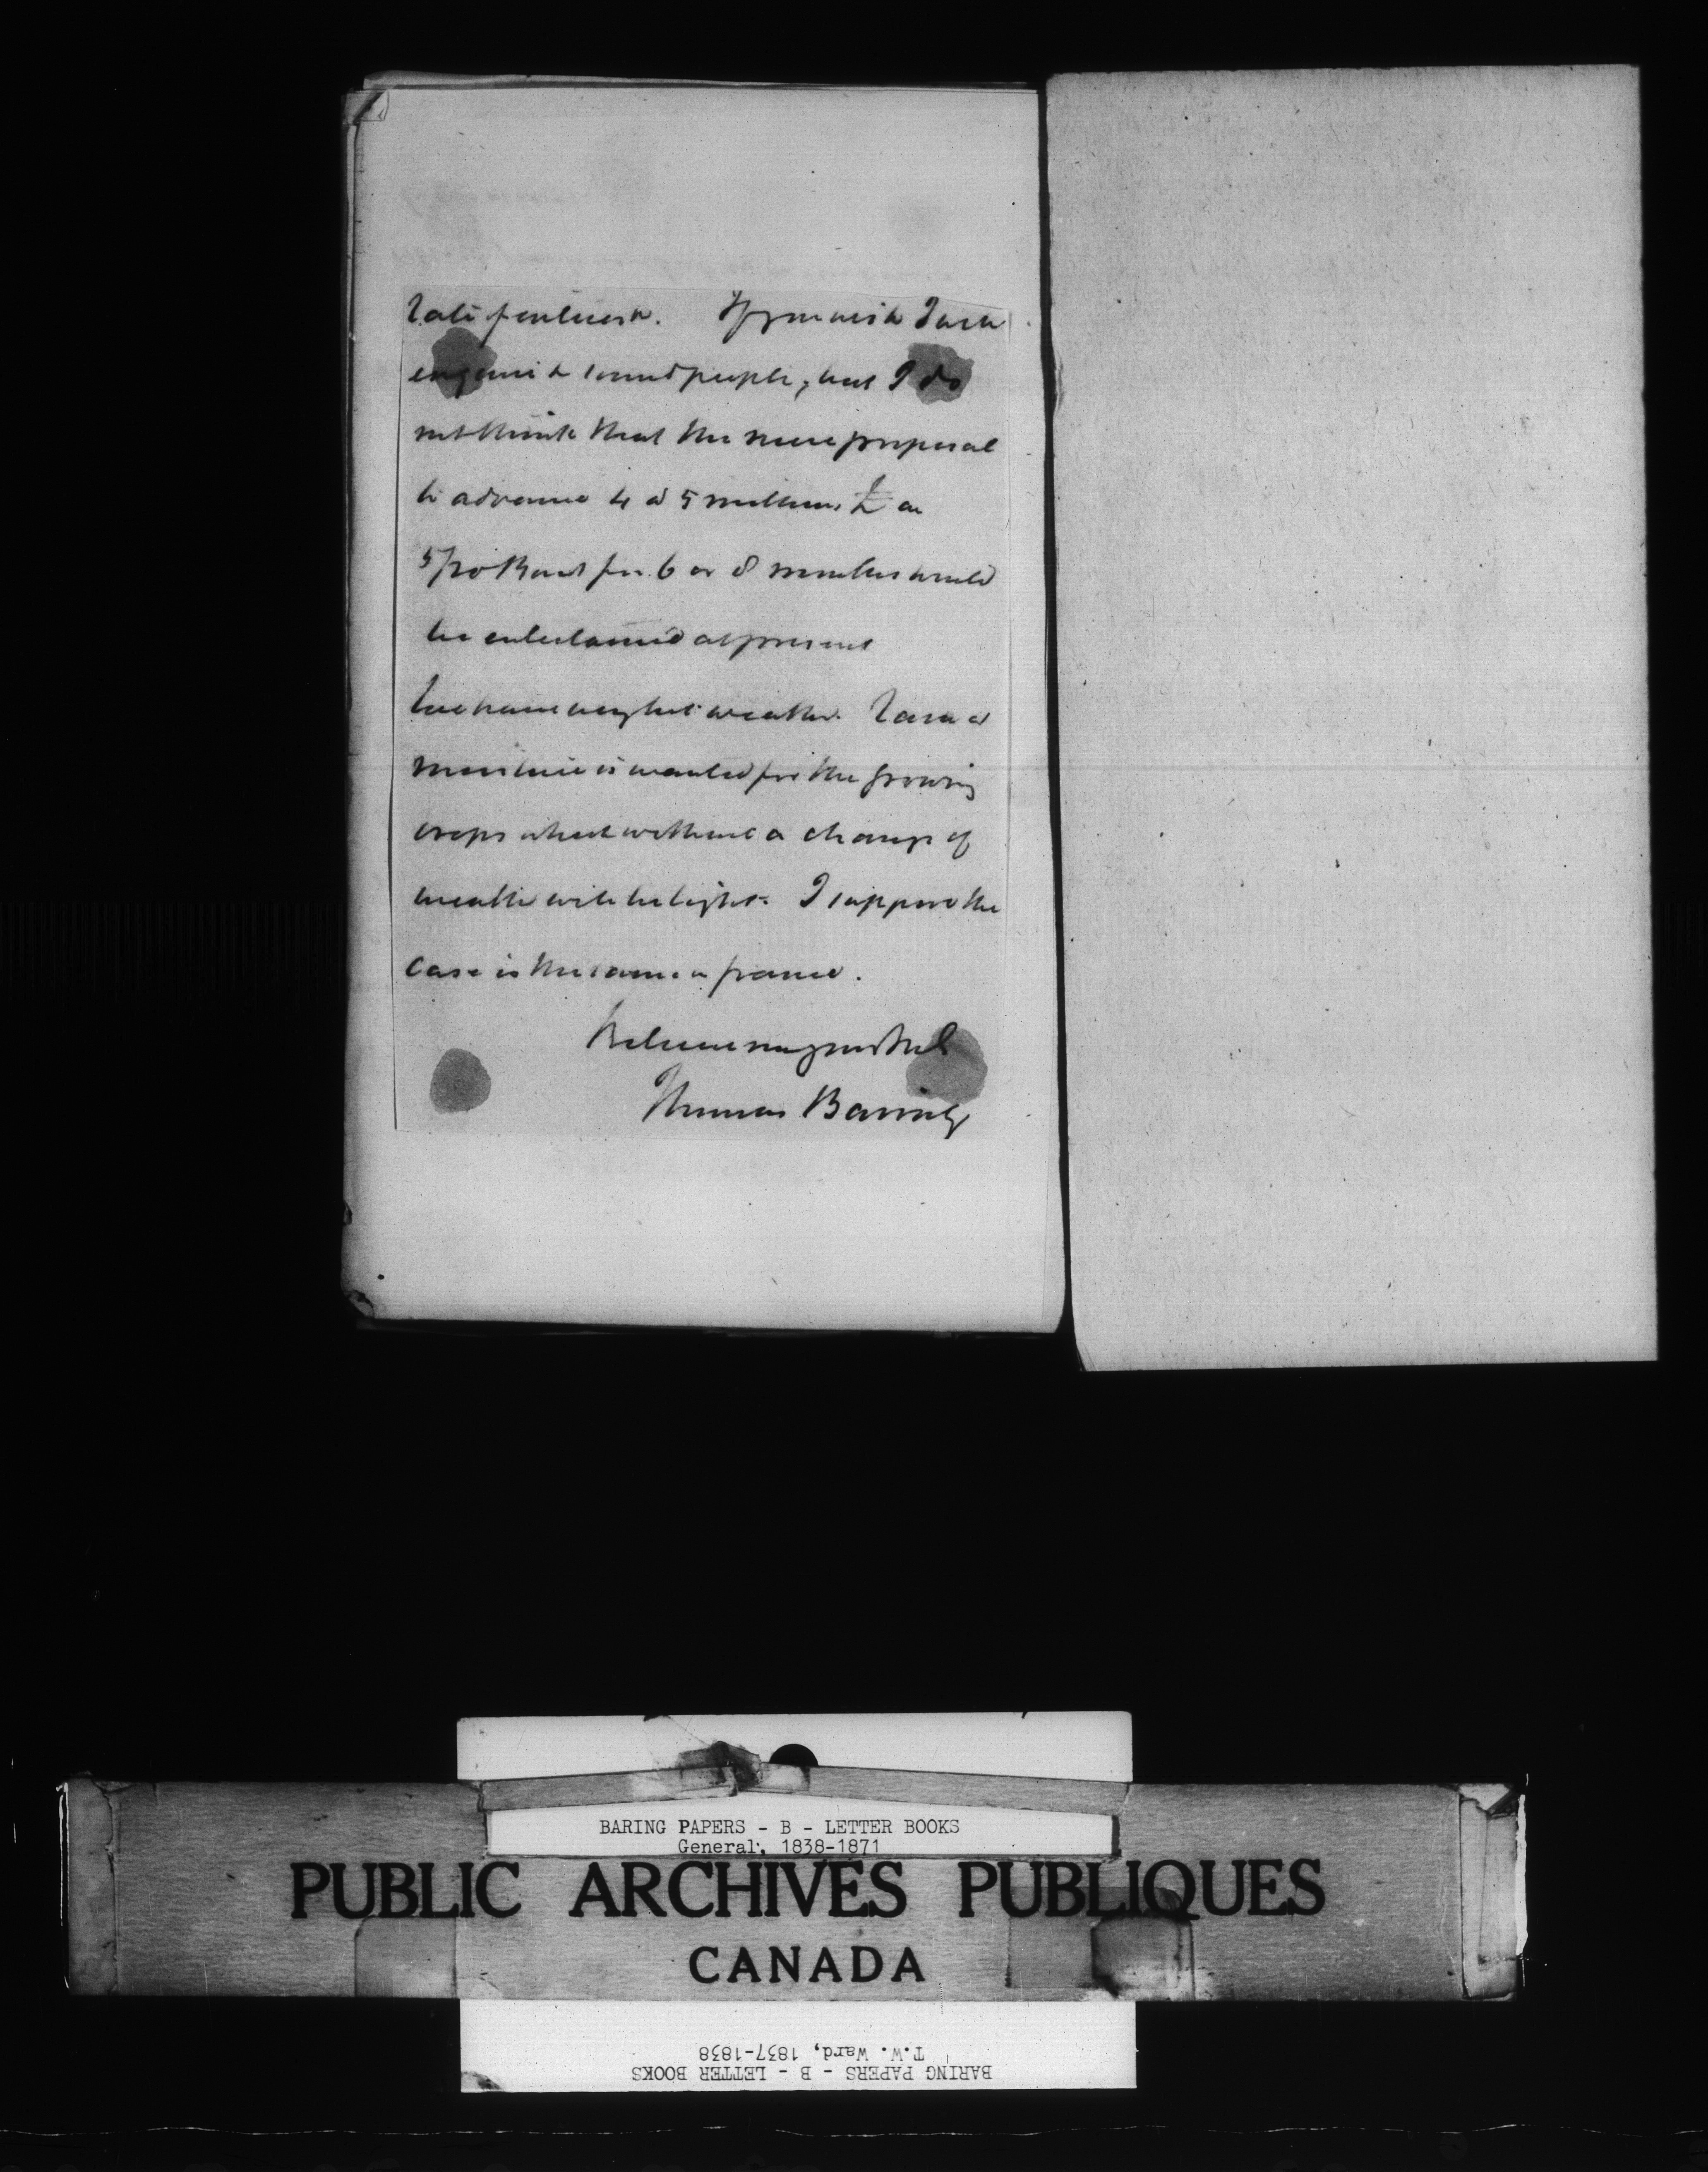 rate of interest. If you wish I will
enquire & sound people, but I do
not think that the mere proposal
to advance 4 a 5 millions £ on
5/20 Bonds for 6 or 8 months would
be entertained at present
We have very hot weather. Rain &
moisture is wanted for the growing
crops which without a change of
weather will be light. I suppose the
case is the same in France.
Believe me yours truly
Thomas Baring
BARING PAPERS - B - LETTER BOOKS
General, 1838-1871
PUBLIC ARCHIVES PUBLIQUES
CANADA
T.W. Ward, 1837-1838
BARING PAPERS - B - LETTER BOOKS